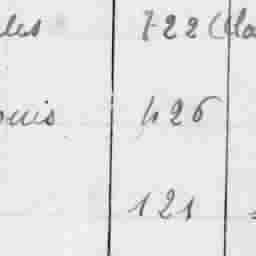 les 722 (Cla
ouis 426
121